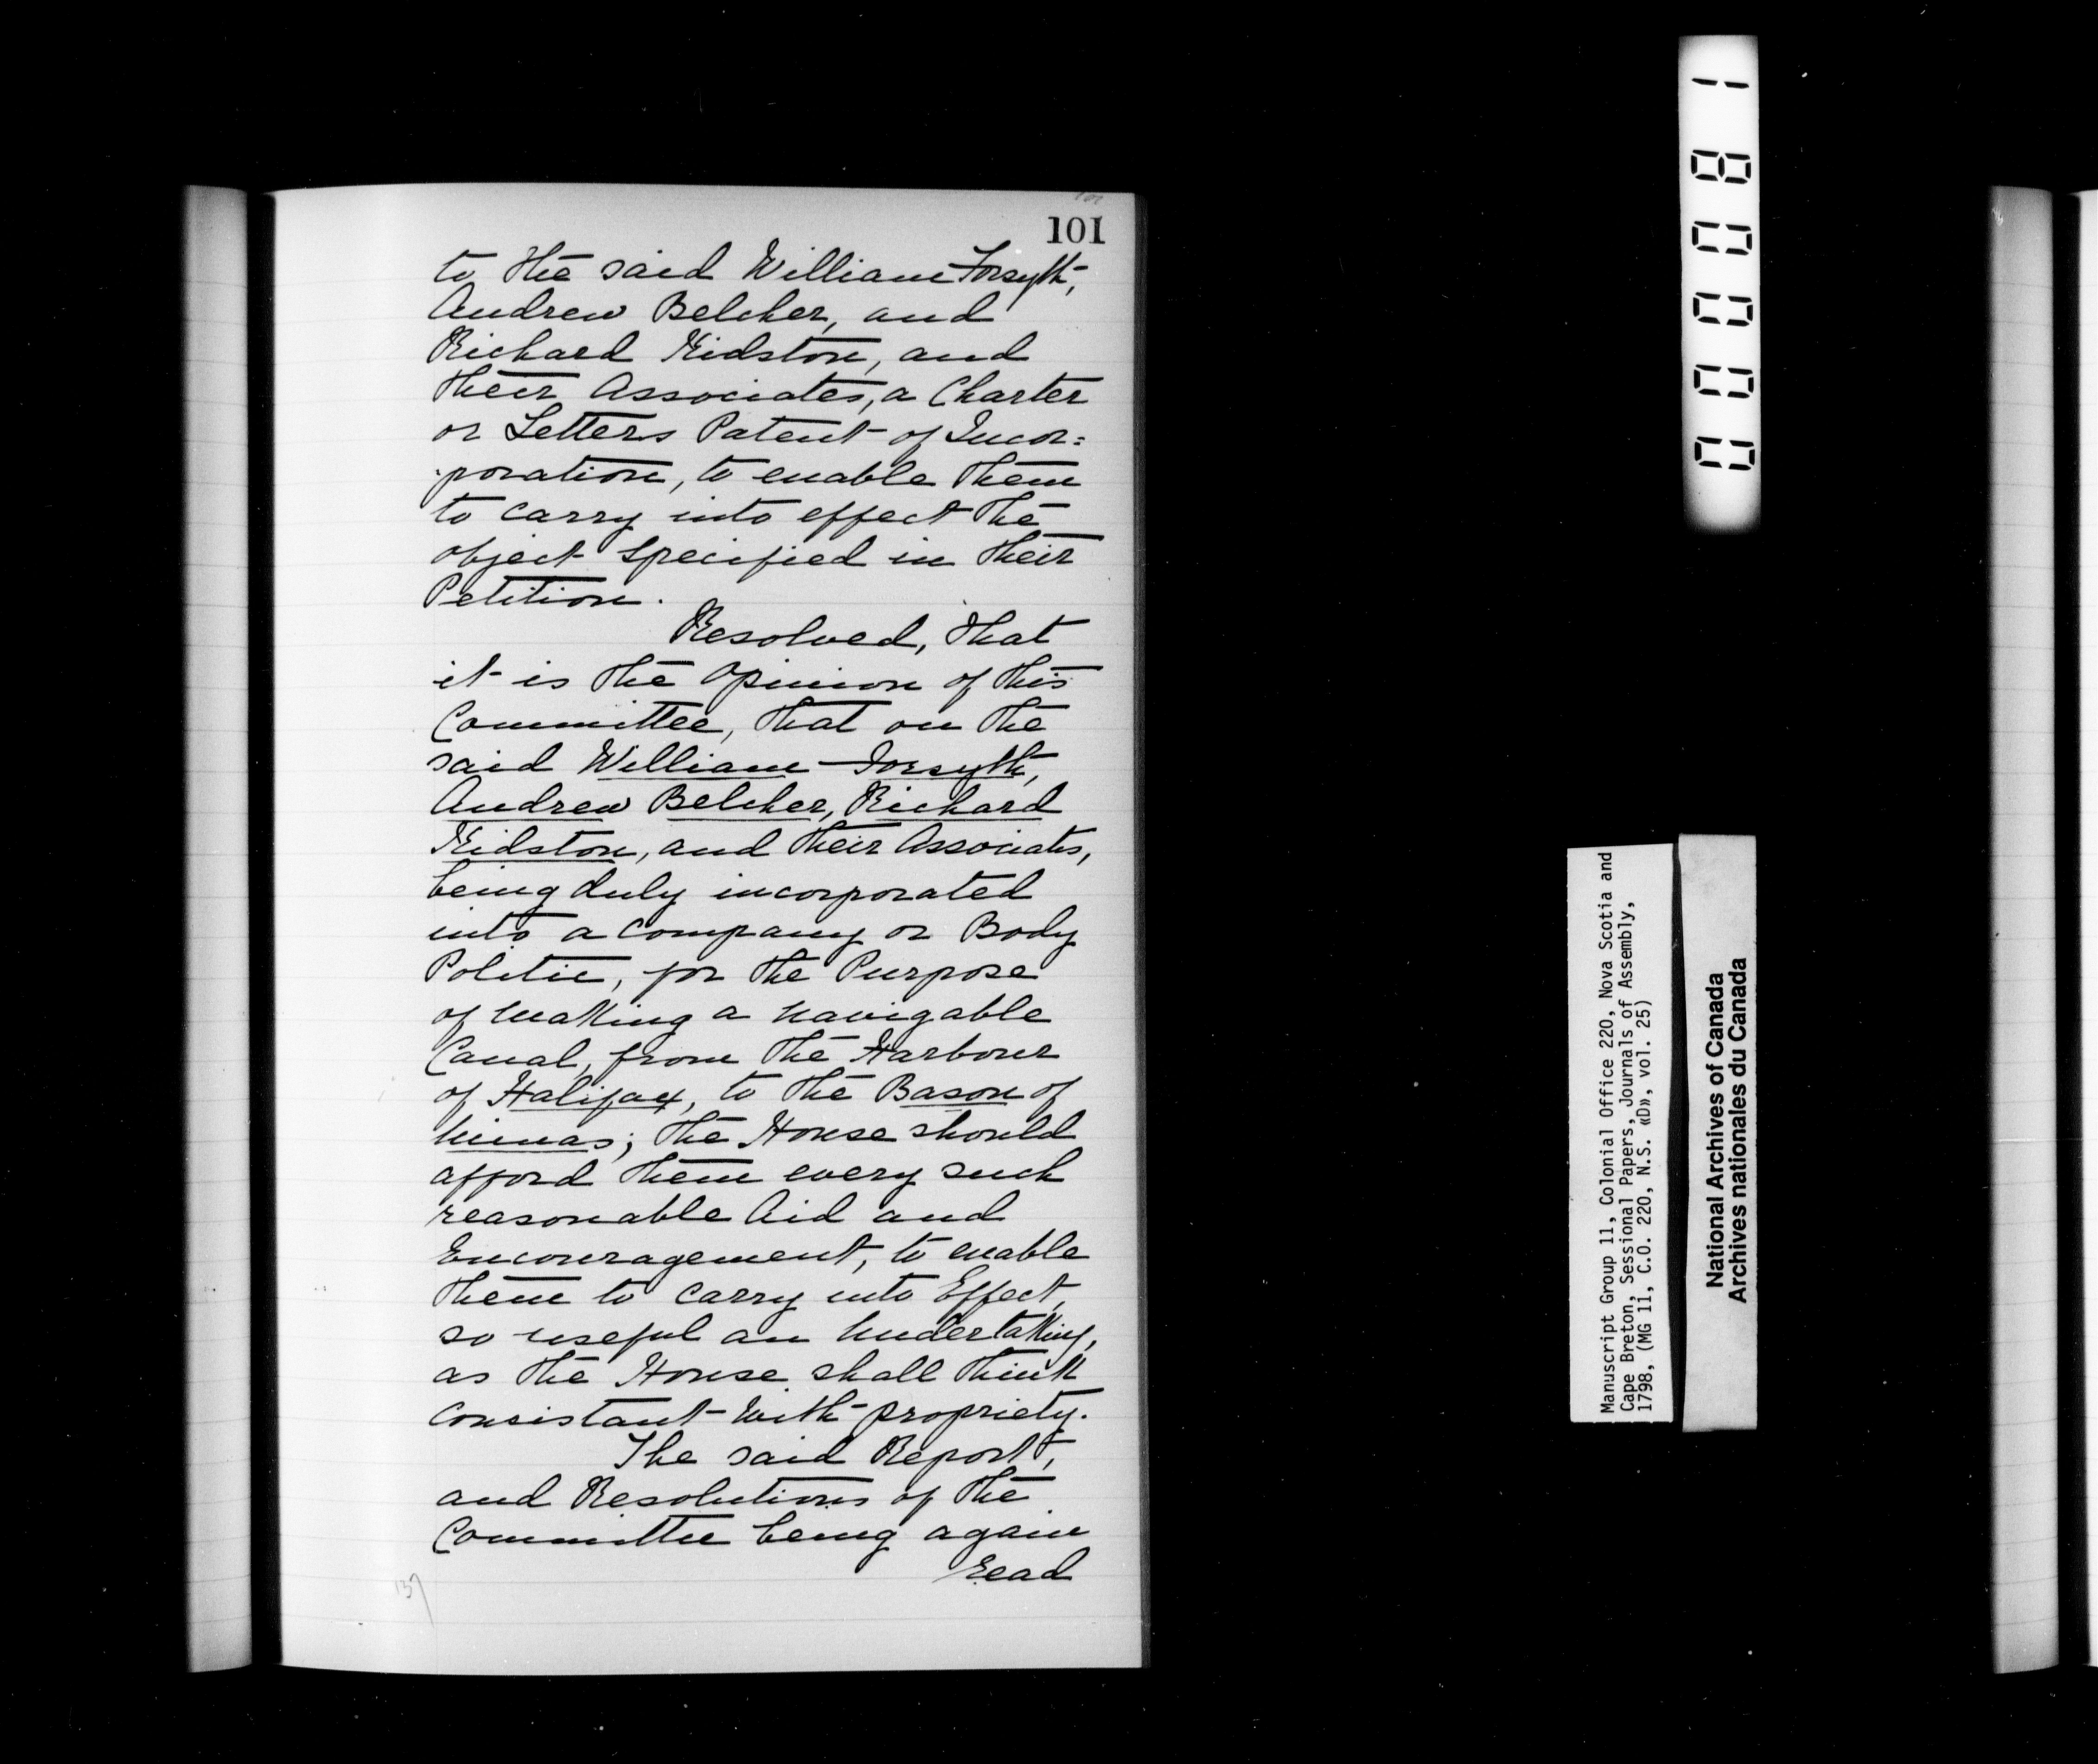 101
to the said William Forsyth,
Andrew Belcher, and
Richard Kidston, and
their Associates, a Charter
or Letters Patent of Incor=
poration, to enable them
to carry into effect the
object specified in their
Petition.
Resolved, that
it is the Opinion of this
Committee, that on the
said William Forsyth,
Andrew Belcher, Richard
Kidston, and their Associates,
being duly incorporated
into a Company or Body
Politic, for the Purpose
of making a navigable
Canal, from the Harbour
of Halifax, to the Bason of
Minas; the House should
afford them every such
reasonable Aid and
Encouragement, to enable
them to carry into Effect,
so useful an Undertaking,
as the House shall think
consistant with propriety.
The said Report,
and Resolutions of the
Committee being again
Read
137
000081
Manuscript Group 11, Colonial Office 220, Nova Scotia and
Cape Breton, Sessional Papers, Journals of Assembly,
1798, (MG 11, C.O. 220, N.S. «D», vol. 25)
National Archives of Canada
Archives nationales du Canada